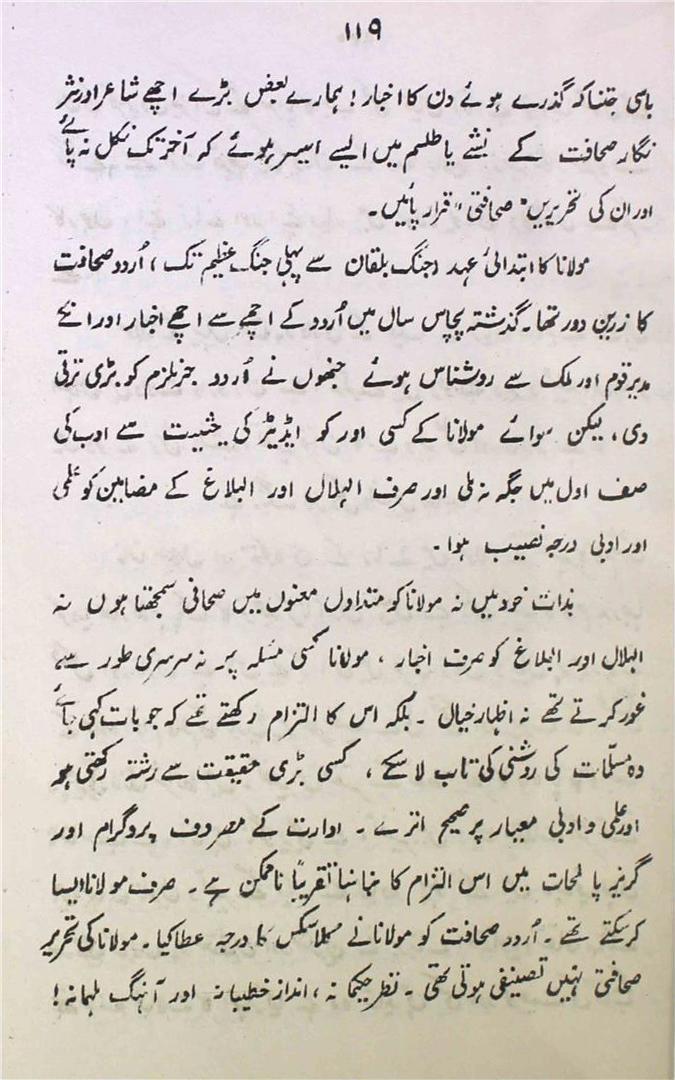 ۱۱۹
باسی جتنا کہ گذرے ہوئے دن کا اخبار! ہمارے بعض بڑے اچھے شاعر اور نثر
نگار صحافت کے نشے یا طلسم میں ایسے اسیر ہوئے کہ آخر تک نکل نہ پائے
اور ان کی تحریریں "صحافتی" قرار پائیں۔
مولانا کا ابتدائی عہد (جنگ بلقان سے پہلی جنگ عظیم تک)، اُردو صحافت
کا زرین دور تھا۔ گذشتہ پچاس سال میں اُردو کے اچھے سے اچھے اخبار اور انکے
مدیر قوم اور ملک سے روشناس ہوئے جنھوں نے اُردو جرنلزم کو بڑی ترقی
دی، لیکن سوائے مولانا کے کسی اور کو ایڈیٹر کی حیثیت سے ادب کی
صف اول میں جگہ نہ ملی اور صرف الہلال اور البلاغ کے مضامین کو علمی
اور ادبی درجہ نصیب ہوا۔
بذات خود میں نہ مولانا کو متداول معنوں میں صحافی سمجھتا ہوں نہ
الہلال اور البلاغ کو صرف اخبار، مولانا کسی مسئلہ پر نہ سرسری طور سے
غور کرتے تھے نہ اظہار خیال۔ بلکہ اس کا التزام رکھتے تھے کہ جو بات کہی جائے
وہ مسلّمات کی روشنی کی تاب لا سکے، کسی بڑی حقیقت سے رشتہ رکھتی ہو
اور علمی و ادبی معیار پر صحیح اترے۔ ادارت کے مصروف پروگرام اور
گریز پا لمحات میں اس التزام کا نباہنا تقریباً ناممکن ہے۔ صرف مولانا ایسا
کر سکتے تھے۔ اُردو صحافت کو مولانا نے کلاسکس کا درجہ عطا کیا۔ مولانا کی تحریر
صحافتی نہیں تصنیفی ہوتی تھی۔ نظر حکیمانہ، انداز خطیبانہ اور آہنگ ملہمانہ!